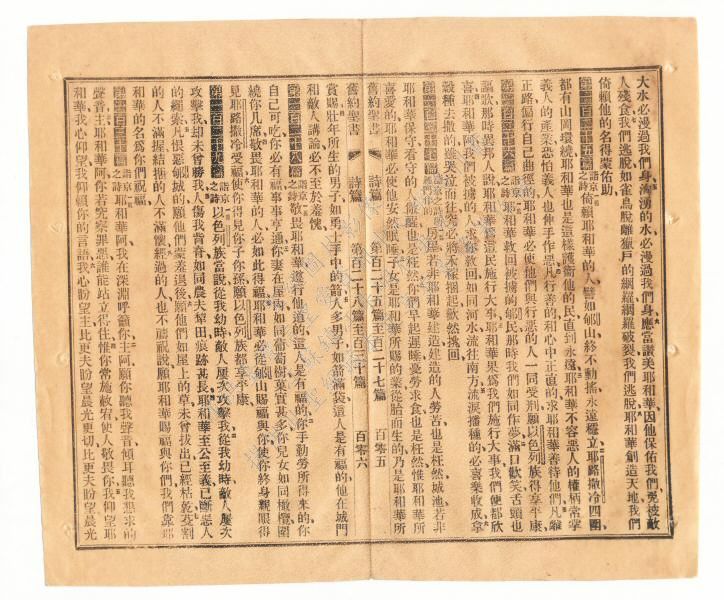 大水必漫過我們身洶湧的水必漫過我們身應當讚美耶和華因他保佑我們免被敵
人殘食我們逃脫如雀鳥脫離獵戶的網羅網羅破裂我們逃脫耶和華創造天地我們
倚賴他的名得蒙佑助
第一百二十五篇 倚賴耶和華的人譬如郇山終不動搖永遠穩立耶路撒冷四圍
都有山岡環繞耶和華也是這樣護衛他的民直到永遠耶和華不容惡人的權柄常掌
義人的產業恐怕義人也伸手作惡凡行善的和心中正直的求耶和華善待他們凡離
正路偏行自己曲徑的耶和華必使他們與行惡的人一同受刑願以色列族得享平康
第一百二十六篇 耶和華救回被擄的郇民那時我們如同作夢滿口歡笑舌頭也
謳歌那時異邦人說耶和華為這民施行大事耶和華果為我們施行大事我們便都歡
喜耶和華我們被擄的人求你救回如同河水流往南方流淚播種的必喜樂收成拿
穀種去撒的雖哭泣而往必將禾稼捆起歡然挑回
房屋若非耶和華建造建造的人勞苦也是枉然城池若非
耶和華保守看守的人儆醒也是枉然你們早起遲睡憂勞求食也是枉然惟耶和華所
喜愛的耶和華必使他安然眠睡子女是耶和華所賜的業從胎而生的乃是耶和華所
舊約聖書 詩篇 第百二十五篇至百二十七篇 百零五
舊約聖書 詩篇 第百二十八篇至百三十篇 百零六
賞賜壯年所生的男子如勇士手中的箭人多男子如箭滿袋這人是有福的他在城門
和敵人講論必不至於羞愧
第一百二十八篇 敬畏耶和華遵行他道的這人是有福的你手勤勞所得來的你
自己可吃你必有福事事亨通你妻在屋內如同葡萄樹菓實甚多你兒女如同橄欖圍
繞你几席敬畏耶和華的人必如此得福耶和華必從郇山賜福與你使你終身親眼得
見耶路撒冷受福使你得見你子你孫願以色列族都享平康
第一百二十九篇 以色列族當說從我幼時敵人屢次攻擊我從我幼時敵人屢次
攻擊我却未曾勝我人傷我脊背如同農夫犂田痕跡甚長耶和華至公至義已斷惡人
的繩索凡恨惡郇城的願他們蒙羞退後願他們如屋上的草未曾拔出已經枯乾芟割
的人不滿握結捆的人不滿懷經過的人也不聽祇說願耶和華賜福與你們我們靠耶
和華的名為你們祝福
第一百三十篇 耶和華阿我在深淵呼籲你主阿願你聽我聲音傾耳聽我懇求的
聲音主耶和華阿你若究察罪惡誰能站立得住惟你常施赦宥使人敬畏你我仰望耶
和華我心仰望我仰賴你的言語我心盼望主比更夫盼望晨光更切比更夫盼望晨光